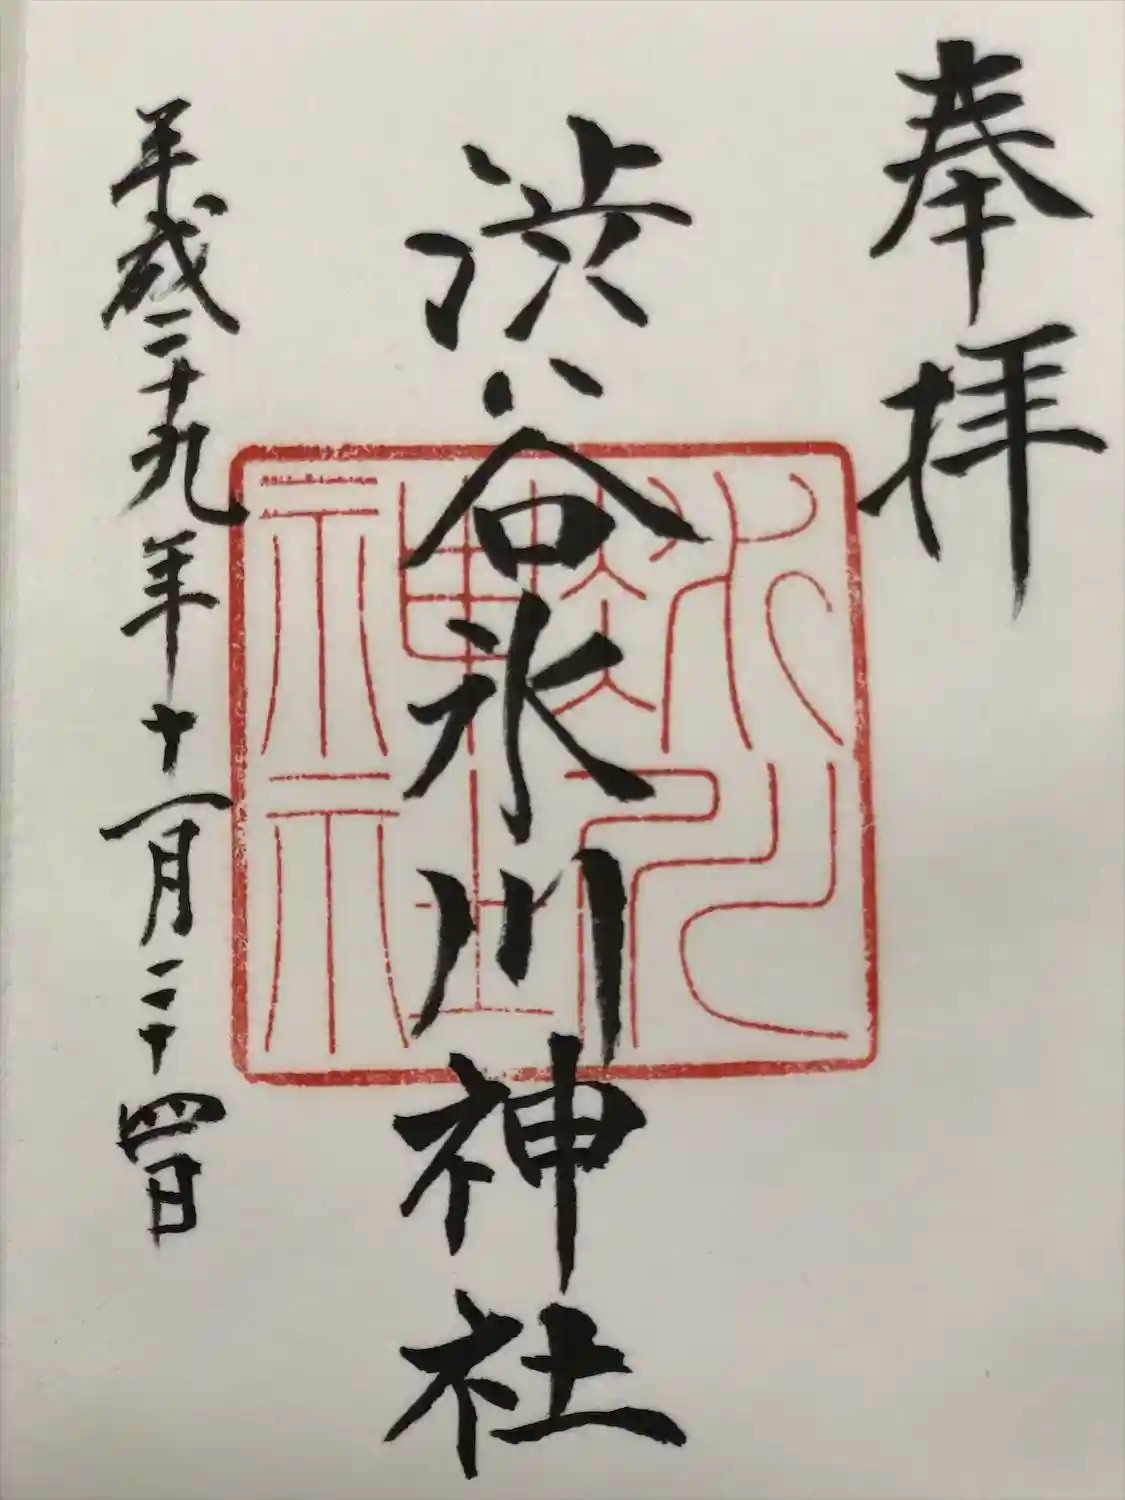 奉拝
渋谷氷川神社
平成二十九年十一月二十四日
氷川
神社